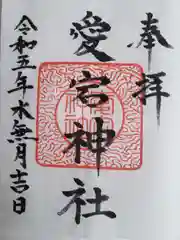 奉拝
愛宕神社
令和五年水無月吉日